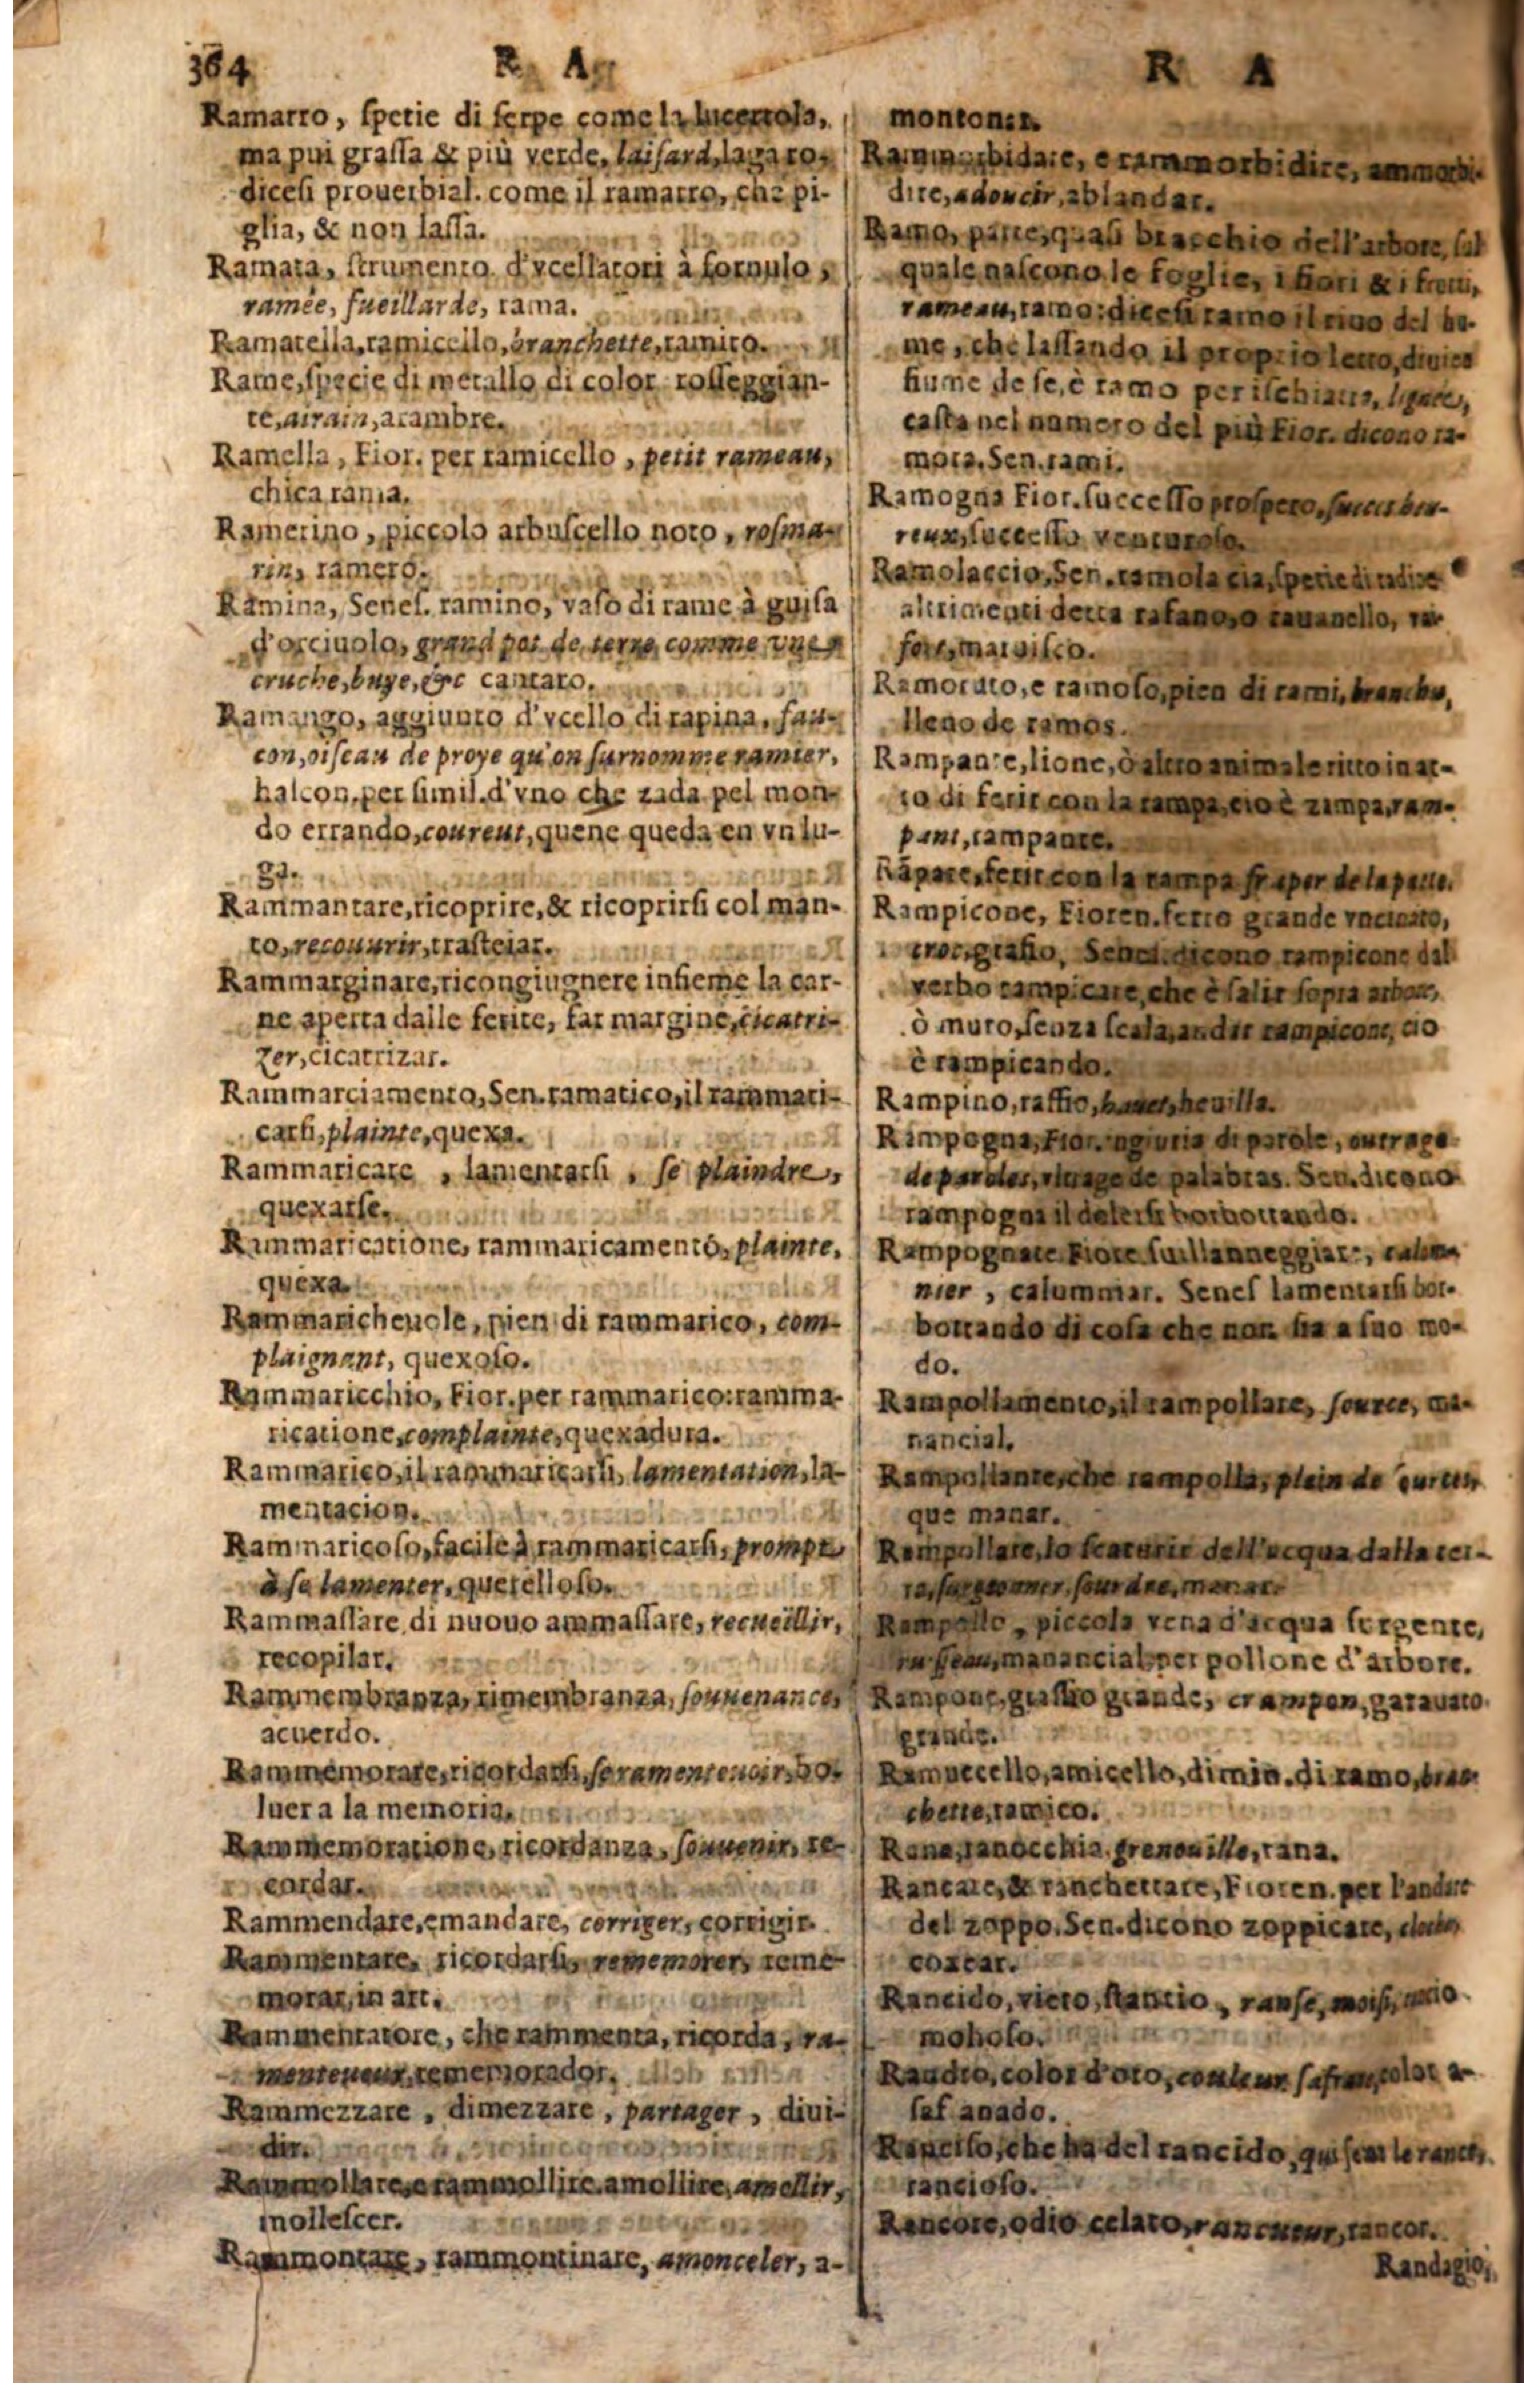 364 R A
Ramarro, ſpetie di ſerpe come la lucertola,
ma pui graſſa & più verde, laiſard, lagaro.
diceſi prouerbial. come il ramarro, che pi-
glia, & non laſſa.
Ramata, ſtrumento d'vcellatori à fornulo,
ramée, fueillarde, rama.
Ramatella, ramicello, branchette, ramito.
Rame, ſpecie di metallo di color roſſeggian-
te, airain, arambre.
Ramella, Fior. per ramicello, petit rameau,
chica rama.
Ramerino, piccolo arbuſcello noto, roſma-
rin, ramero.
Ramina, Seneſ. ramino, vaſo di rame à guiſa
d'orciuolo, grand pot de terre comme vne
cruche, buye, &c cantaro.
Ramango, aggiunto d'vcello di rapina, fau-
con, oiſeau de proye qu'on ſurnomme ramier,
halcon, per ſimil. d'vno che zada pel mon-
do errando, coureur, quene queda en vn lu-
ga.
Rammantare, ricoprire, & ricoprirſi col man-
to, recouurir, traſteiar.
Rammarginare, ricongiugnere inſieme la car-
ne aperta dalle ferite, far margine, cicatri-
zer, cicatrizar.
Rammarciamento, Sen. ramatico, il rammari-
carſi, plainte, quexa.
Rammaricare, lamentarſi, ſe plaindre,
quexarſe.
Rammaricatione, rammaricamento, plainte,
quexa.
Rammaricheuole, pien di rammarico, com-
plaignant, quexoſo.
Rammaricchio, Fior. per rammarico: ramma-
ricatione, complainte, quexadura.
Rammarico, il rammaricarſi, lamentation, la-
mentacion.
Rammaricoſo, facile à rammaricarſi, prompt
à ſe lamenter, querelloſo.
Rammaſſare di nuouo ammaſſare, recueillir,
recopilar.
Rammembranza, rimembranza, ſouuenance,
acuerdo.
Rammemorare, ricordarſi, ſe ramenteuoir, bo-
luer a la memoria.
Rammemoratione, ricordanza, ſouuenir, re-
cordar.
Rammendare, emandare, corriger, corrigir.
Rammentare, ricordarſi, rememorer, reme-
morar, in att.
Rammentatore, che rammenta, ricorda, ra-
menteueur, rememorador.
Rammezzare, dimezzare, partager, diui-
dir.
Rammollare, e rammollire, amollire, amollir,
molleſcer.
Rammontare, rammontinare, amonceler, a-
R A
montonar.
Rammorbidare, e rammorbidire, ammorbi-
dire, adoucir, ablandar.
Ramo, parte, quaſi bracchio dell'arbore, ſul
quale naſcono le foglie, i fiori & i frutti,
rameau, ramo: diceſi ramo il riuo del ha-
me, che laſſando il proprio letto, diuien
fiume de ſe, è ramo per iſchiatta, lignée,
caſta nel numero del più Fior. dicono ra-
mora. Sen. rami.
Ramogna Fior. ſucceſſo proſpero, ſucces heu-
reux, ſucceſſo venturoſo.
Ramolaccio, Sen. ramolaccia, ſpetie di radice
altrimenti detta rafano, o rauanello, rai-
fort, maruiſco.
Ramoruto, e ramoſo, pien di rami, branchu,
lleno de ramos.
Rampante, lione, ò altro animale ritto in at-
to di ferir con la rampa, cio è zampa, ram-
pant, rampante.
Rãpare, ferir con la rampa fraper de la patte.
Rampicone, Fioren. ferro grande vncinato,
croc, grafio, Seneſ. dicono rampicone dal
verbo rampicare, che è ſalir ſopra arbore,
ò muro, ſenza ſcala, andar rampicone, cio
è rampicando.
Rampino, raffio, hauet, heuilla.
Rampogna, Fior. ngiuria di parole, outrage
de paroles, vltrage de palabras. Sen. dicono
rampogna il dolerſi borbottando.
Rampognare Fiore ſuillanneggiare, calom-
nier, calumniar. Seneſ lamentarſi bor-
bottando di coſa che non ſia a ſuo mo-
do.
Rampollamento, il rampollare, ſource, ma-
nancial.
Rampollante, che rampolla, plein de ſurcus,
que manar.
Rampollare, lo ſcaturir dell'acqua dalla ter-
ra, ſurgeonner, ſourdre, manar.
Rampollo, piccola vena d'acqua ſurgente,
ruiſſeau, manancial, per pollone d'arbore.
Rampone, graffio grande, crampon, garauato
grande.
Ramuccello, amicello, dimin. di ramo, bran-
chette, ramico.
Rana, ranocchia, grenouille, rana.
Rancare, & ranchettare, Fioren. per l'andare
del zoppo. Sen. dicono zoppicare, clocher,
coxear.
Rancido, vieto, ſtantio, ranſe, moiſi,
mohoſo.
Randro, color d'oro, couleur ſafran, color a-
ſaf anado.
Ranciſo, che ha del rancido, qui ſent le rance,
rancioſo.
Rancore, odio celato, rancueur, rancor.
Randagio,